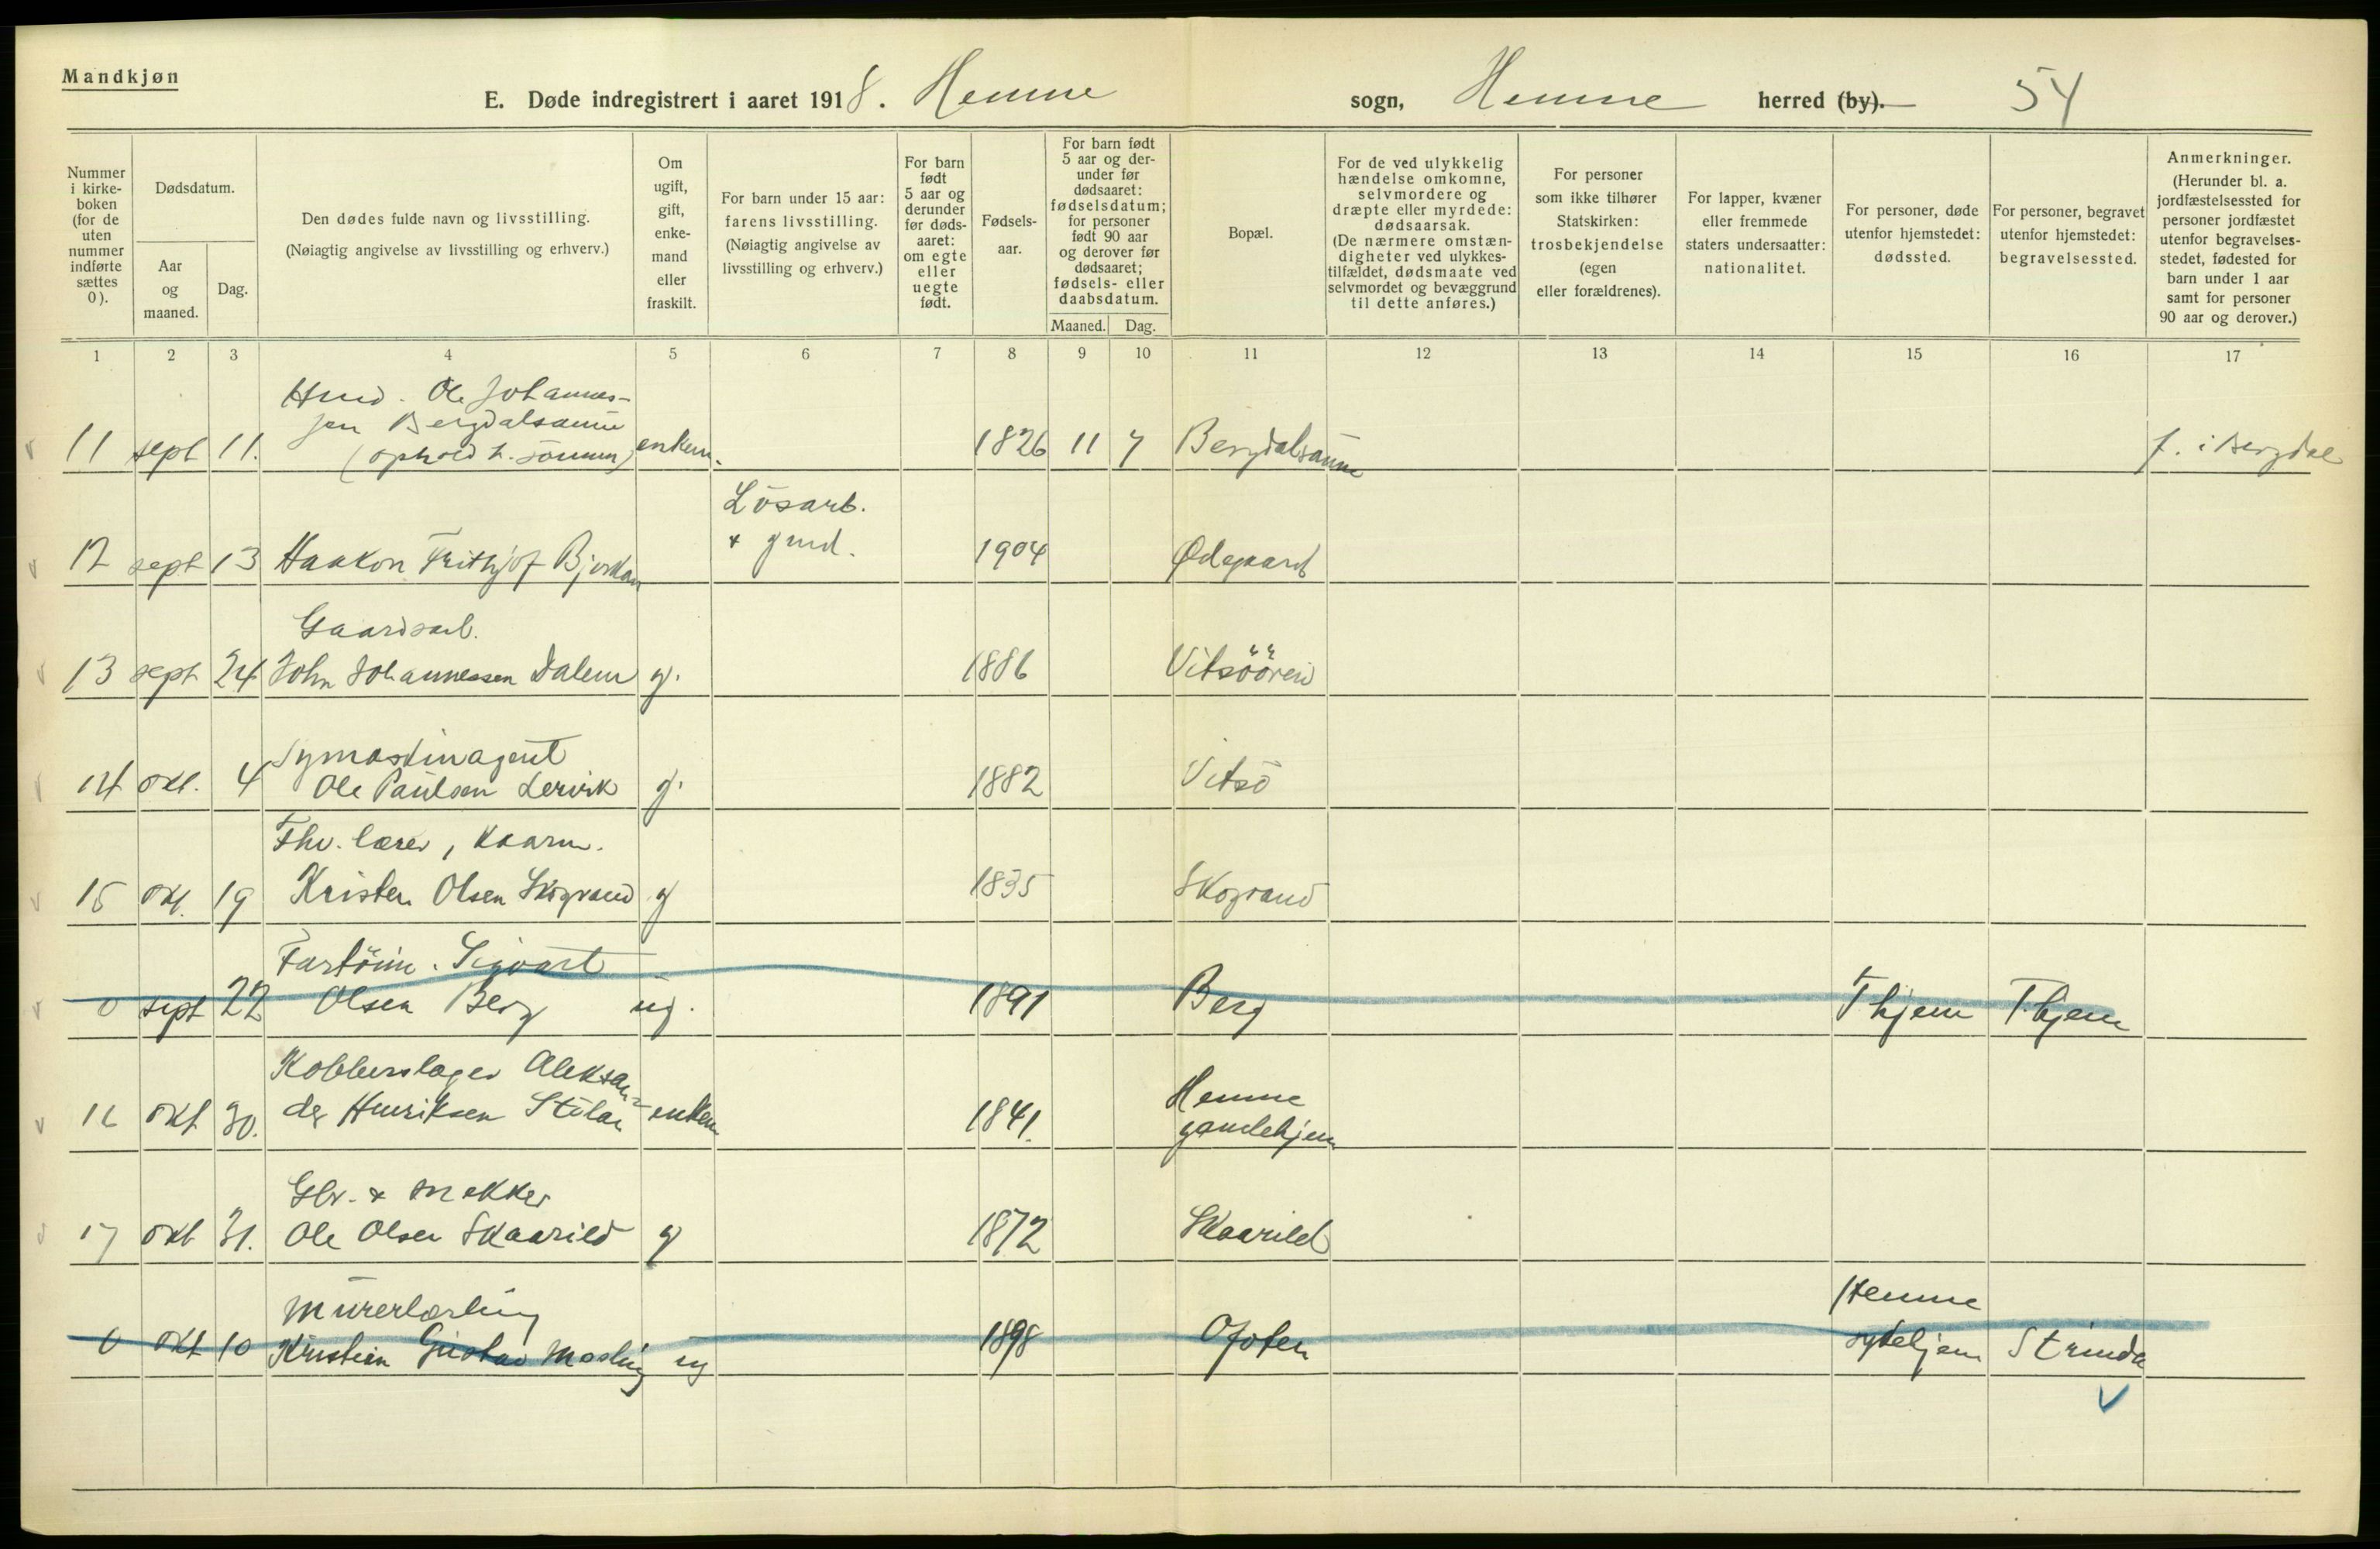 Mandkjøn
E. Døde indregistrert i aaret 1918. Hemne sogn, Hemne herred (by). 54
Nummer i kirkeboken (for de uten nummer indførte sættes 0).
Dødsdatum.
Aar og maaned.
Dag.
Den dødes fulde navn og livsstilling.
(Nøiagtig angivelse av livsstilling og erhverv.)
Om ugift, gift, enkemand eller fraskilt.
For barn under 15 aar: farens livsstilling.
(Nøiagtig angivelse av livsstilling og erhverv.)
For barn født 5 aar og derunder før dødsaaret: om egte eller uegte født.
Fødselsaar.
For barn født 5 aar og derunder før dødsaaret: fødselsdatum; for personer født 90 aar og derover før dødsaaret; fødsels- eller daabsdatum.
Maaned.
Dag.
Bopæl.
For de ved ulykkelig hændelse omkomne, selvmordere og dræpte eller myrdede: dødsaarsak.
(De nærmere omstændigheter ved ulykkestilfældet, dødsmaate ved selvmordet og bevæggrund til dette anføres.)
For personer som ikke tilhører Statskirken: trosbekjendelse (egen eller forældrenes).
For lapper, kvæner eller fremmede staters undersaatter: nationalitet.
For personer, døde utenfor hjemstedet: dødssted.
For personer, begravet utenfor hjemstedet: begravelsessted.
Anmerkninger.
(Herunder bl. a. jordfæstelsessted for personer jordfæstet utenfor begravelsesstedet, fødested for barn under 1 aar samt for personer 90 aar og derover.)
1 2 3 4 5 6 7 8 9 10 11 12 13 14 15 16 17
Ole Johannes-
sen Bergdalsaune
11 sept 11. (ophold h. sönnen) enkem. 1826 11 7 Bergdalsaune f. i Bergdal
Lösarb.
12 sept 13 Haakon Frithjof Bjørkan & gmd. 1904 Ødegaard
Gaardsarb.
13 sept 24 John Johannessen Dalem g. 1886 Vitsöören
Symaskinagent
14 okt. 4 Ole Paulsen Lervik g. 1882 Vitsö
Fhv. lærer, kaarm.
15 okt. 19 Kristen Olsen Skogrand g 1835 Skogrand
Sigvart
0 sept 22 Olsen Berg ug. 1891 Berg Thjem Thjem
Kobberslager Aleksan-
16 okt 30. der Henriksen Stölan enkem 1841. Hemne
gamlehjem
Gbr. & snekker
17 okt 31. Ole Olsen Skaarild g 1872 Skaarild
Murerlærling Hemne
0 okt 10 Kristian Gustav Mosling ug 1898 Ofoten sykehjem Strinda